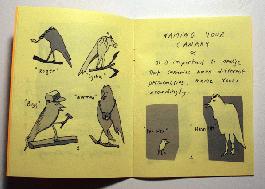 "Roger"
"Jythe"
"Boy"
"Norman"
NAMING YOUR
CANARY
It is important to realize
that canaries have different
personalities, name yours
accordingly.